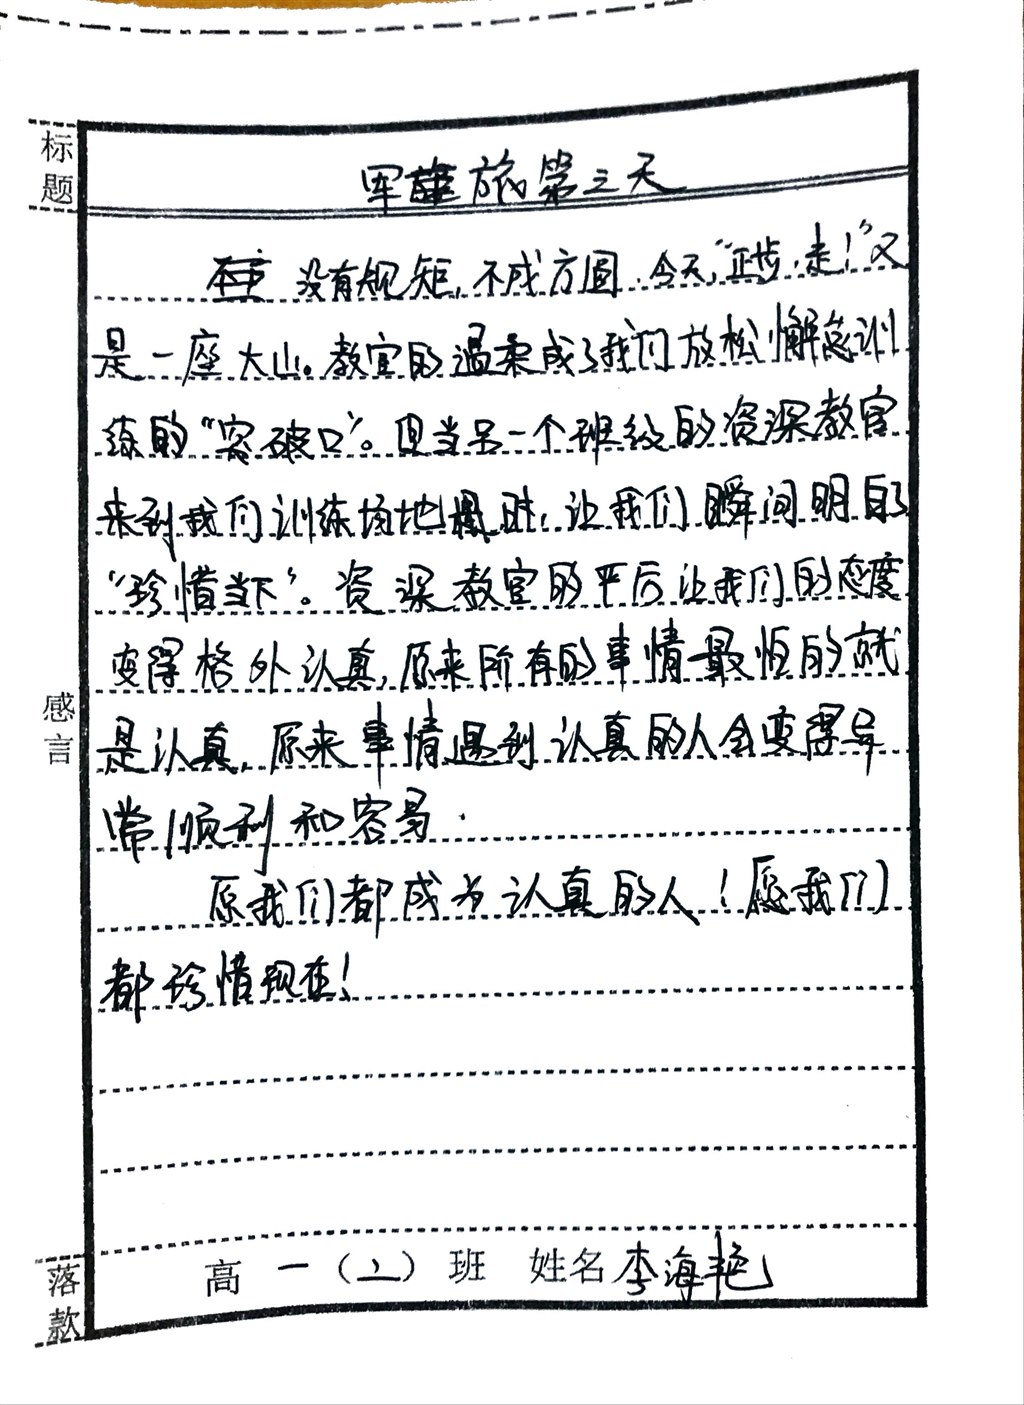 标题
军旅第三天
没有规矩,不成方圆.今天,"正步,走!"又
是一座大山。教官的温柔成了我们放松懈怠训
练的"突破口"。但当另一个班级的资深教官
来到我们训练场地时,让我们瞬间明白了
"珍惜当下"。资深教官的严厉让我们的态度
变得格外认真,原来所有的事情最怕的就
是认真,原来事情遇到认真的人会变得异
常顺利和容易.
愿我们都成为认真的人!愿我们
都珍惜现在!
感言
落款
高一()班 姓名 李海艳